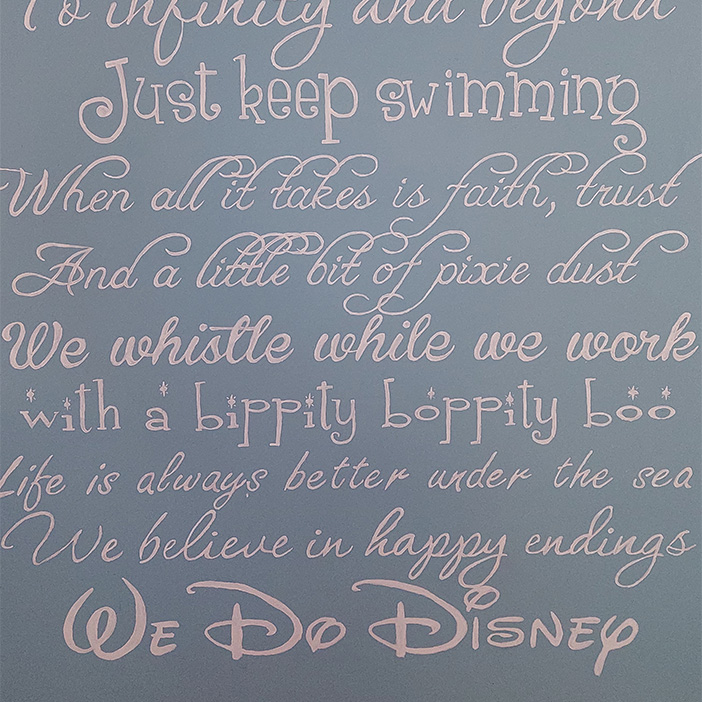 To infinity and beyond
Just keep swimming
When all it takes is faith, trust
And a little bit of pixie dust
We whistle while we work
with a bippity boppity boo
Life is always better under the sea
We believe in happy endings
We Do Disney